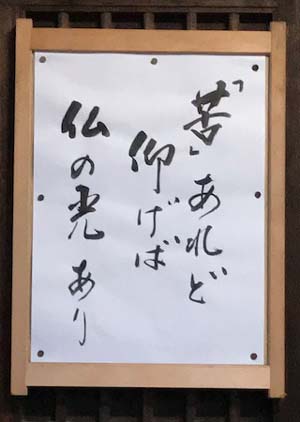 「苦」あれど
仰げば
仏の光あり